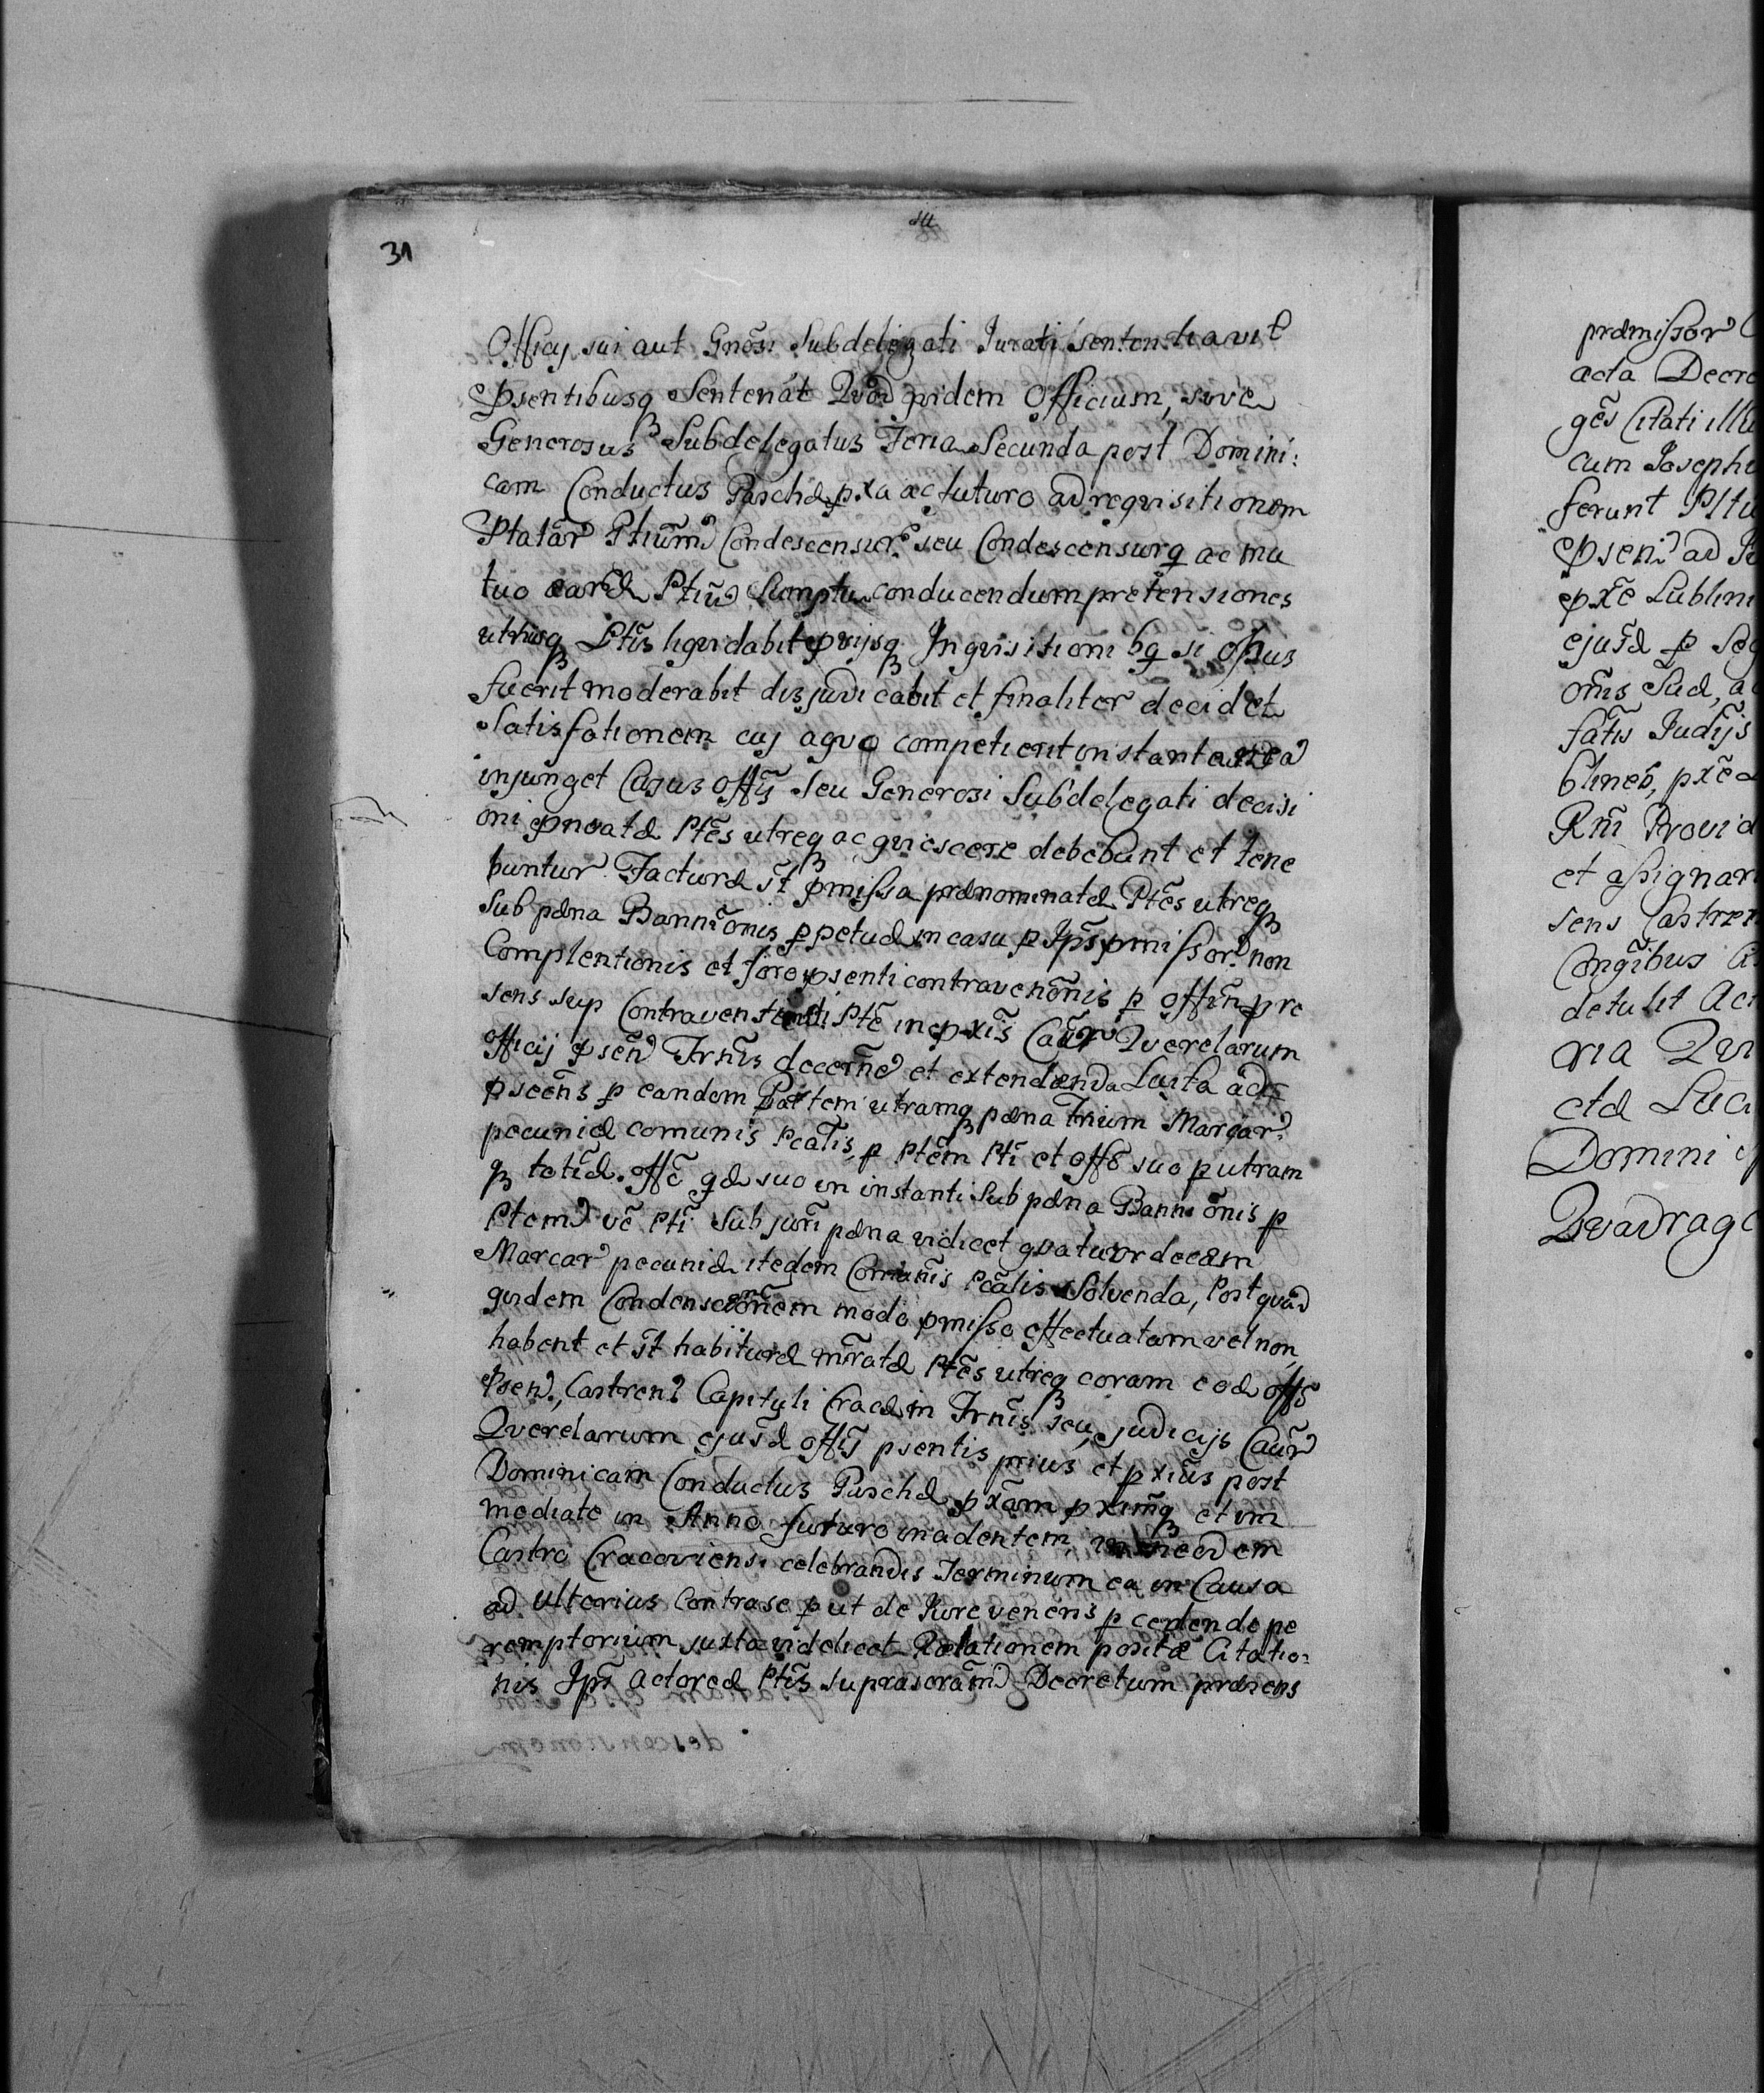 31
Officij sui aut Gnosi Subdelegati Jurati sententiavit
psentibusq Sentenat Quod pidem Officium, sive
Generosus Subdelegatus Feria Secunda post Domini:
cam Conductus Paschæ pxa ac futuro ad reqvisitionem
Ptatar Ptium Condescensur seu Condescensurq ac mu
tuo eard Ptiu Sumptu conducendum pretensiones
utriusq Ptis liqvidabit pvijsq Inqvisitionibq si opus
fuerit moderabit disjudicabit et finaliter decidet
Satisfationem cuj aqvo competierit instantanea
injunget Cajus offij Seu Generosi Subdelegati decisi
oni pnoatæ Ptes utreq acqviescere debebunt et tene
buntur Facturæ st pmissa prænominatæ Ptes utreq
Sub pæna Bannionis ppetuæ in casu p Ips pmissor non
Complentionis et foro psenti contravenonis p offin pre
sens sup Contravenienti Pte in pxis Caur Qverelarum
officij psen Trnis decerne et extendenda Luita adr
pscens p eandem Partem utramq pæna Trium Marcar
pecuniæ comunis Pcalis, p Ptem Pti et offo suo p utram
q totid. offc qd suo in instanti Sub pæna Bannionis p
Ptem ve Pti Sub juri pæna vidicet qvatuordecem
Marcar pecuniæ itedem Comunis Pcalis Solvenda, Post qvad
qvidem Condenscionem modo pmisso effectuatam vel non,
habent et st habituræ mratæ Ptes utreq coram eod offo
Psen, Castren Capituli Crac in Trnis seu judicijs Caur
Qverelarum ejusd offij psentis prius et pxius post
Dominicam Conductus Paschæ pxam pximq et im
mediate in Anno futuro inadentem, in eodem
Castro Cracoviens. celebrandis Terminum ea in Causa
ad Ulterius Contra se put de Jure veneris pcedende pe
remptorium juxta videlicet Relationem positæ Citatio:
nis Ips actoreæ Ptis Suprascram Decretum præsens
præmissor
acta Decre
ges Citati illu
cum Joseph
ferunt Pltu
psen ad
pxe Lublini
ejusd p Seq
onis Sud, a
fatis Judijs
blineb, pxe
Rni Provid
et assignar
sens Castren
Congibus
detulit Act
ria Qvi
ctæ Luci
Domini
Qvadrage